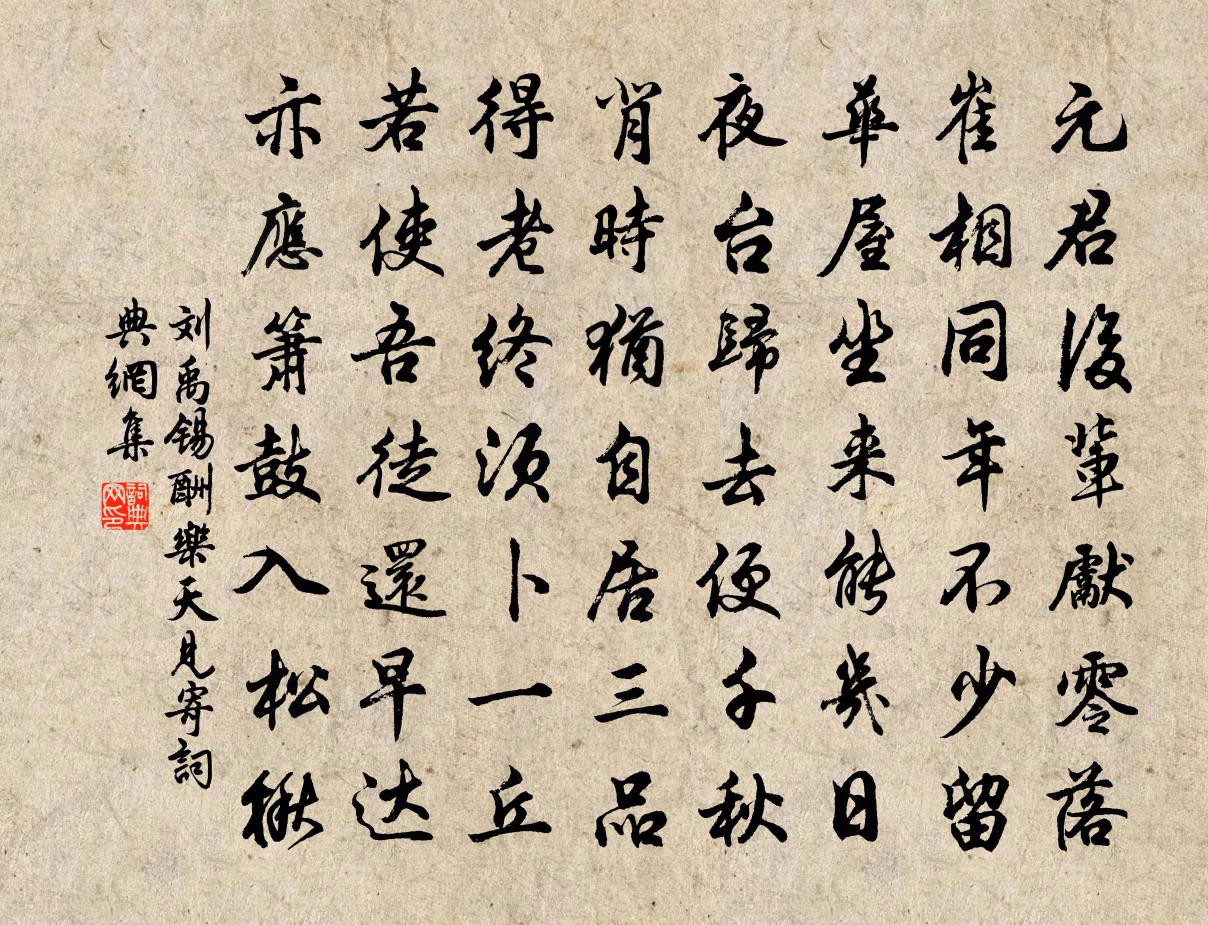 元君後輩獻零落
崔相同年不少留
華屋坐来能幾日
夜台歸去便千秋
背時猶自居三品
得老终須卜一丘
若使吾徒還早达
亦應簫鼓入松楸
刘禹锡酬樂天見寄詞
典網集
詞典
网印